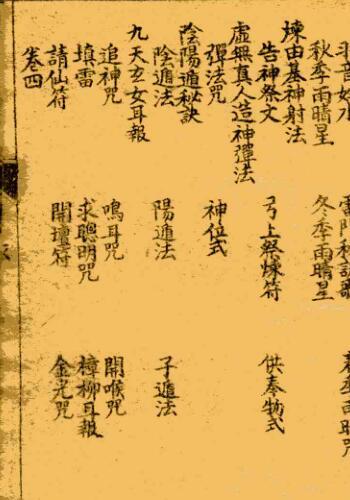 秋季雨晴星 冬季雨晴星
煉由基神射法
告神祭文 弓上祭煉符 供奉物式
虛無真人造神彈法
彈法咒 神位式
陰陽遁秘訣
陰遁法 陽遁法 子遁法
九天玄女耳報
追神咒 鳴耳咒 開喉咒
填雷 求聰明咒 樟柳耳報
請仙符 開壇符 金光咒
卷四